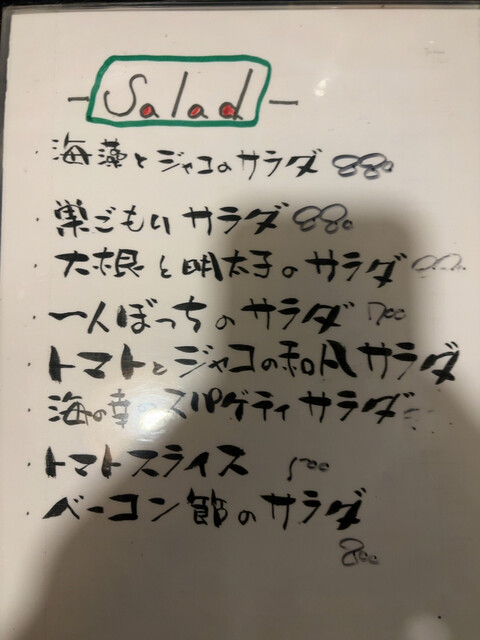 -Salad-
・海藻とジャコのサラダ 880
・巣ごもりサラダ 880
・大根と明太子のサラダ
・一人ぼっちのサラダ 700
・トマトとジャコの和風サラダ
・海の幸のスパゲティサラダ
・トマトスライス 500
・ベーコン節のサラダ
800